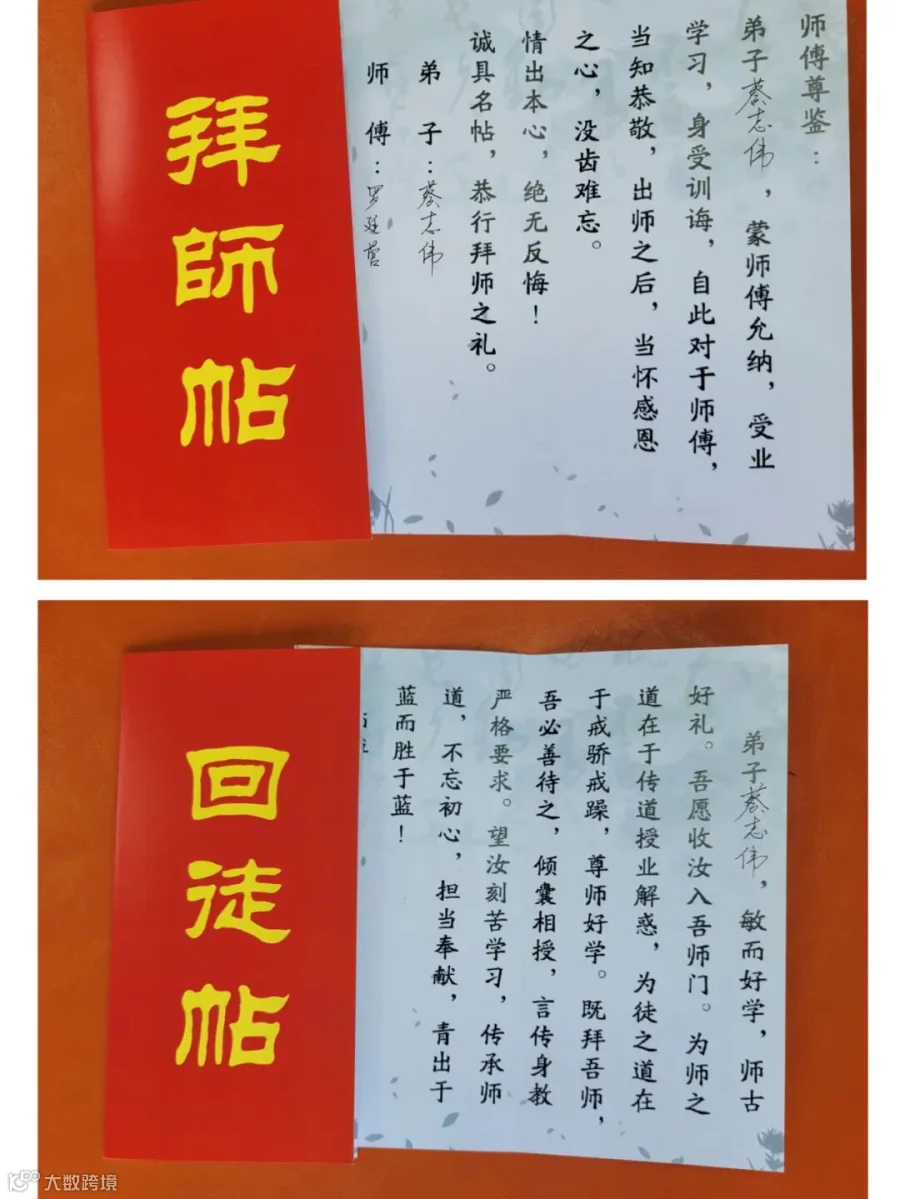 拜師帖
师傅尊鉴：
弟子蔡志伟，蒙师傅允纳，受业
学习，身受训诲，自此对于师傅，
当知恭敬，出师之后，当怀感恩
之心，没齿难忘。
情出本心，绝无反悔！
诚具名帖，恭行拜师之礼。
弟子：蔡志伟
师傅：罗廷营
回徒帖
弟子蔡志伟，敏而好学，师古
好礼。吾愿收汝入吾师门。为师之
道在于传道授业解惑，为徒之道在
于戒骄戒躁，尊师好学。既拜吾师，
吾必善待之，倾囊相授，言传身教
严格要求。望汝刻苦学习，传承师
道，不忘初心，担当奉献，青出于
蓝而胜于蓝！
大数跨境